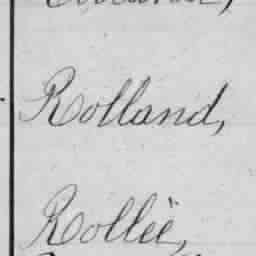 Rolland,
Rollie,